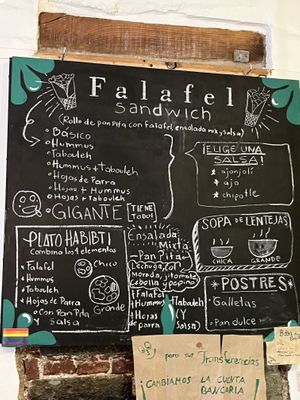 Falafel
Sandwich
(Rollo de pan pita con falafel, ensalada mixta y salsa)
○ Básico
○ Hummus
○ Tabouleh
○ Hummus + Tabouleh
○ Hojas de Parra
○ Hojas + Hummus
○ Hojas + Tabouleh
○ GIGANTE
¡TIENE
TODO!
¡ELIGE UNA
SALSA!
* ajonjolí
* ajo
* chipotle
SOPA DE LENTEJAS
CHICA
GRANDE
PLATO HABIBTI
Combina los 4 elementos
• Falafel
• Hummus
• Tabouleh
• Hojas de Parra
○ Con Pan Pita
y Salsa
Chico
Grande
Ensalada
Mixta
- Pan Pita -
(Lechuga, col
Morada, jitomate,
cebolla y pepino)
+ Falafel
+ Hummus
+ Hojas
de parra
+ Tabouleh
(y
Salsa)
* POSTRES
* Galletas
* Pan dulce
para sus Transferencias
CAMBIAMOS LA CUENTA
BANCARIA